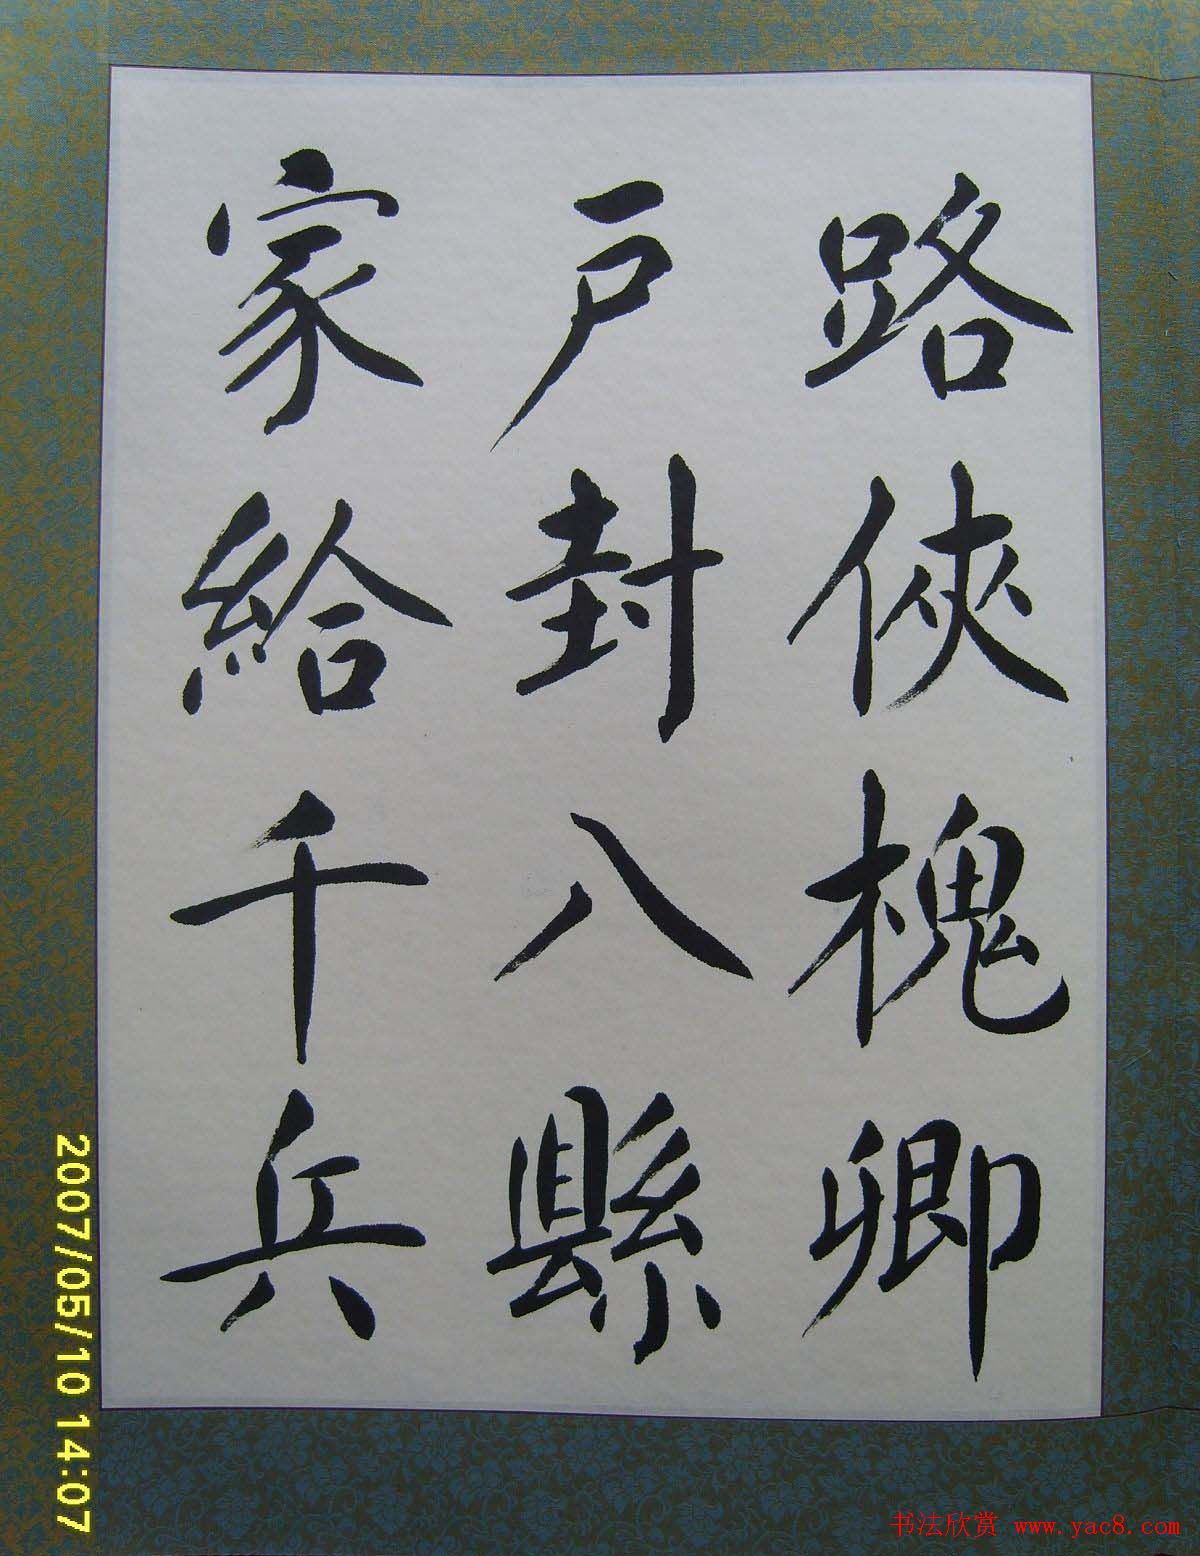 路俠槐卿
戶封八縣
家給千兵
2007/05/10 14:07
书法欣赏 www.yac8.com